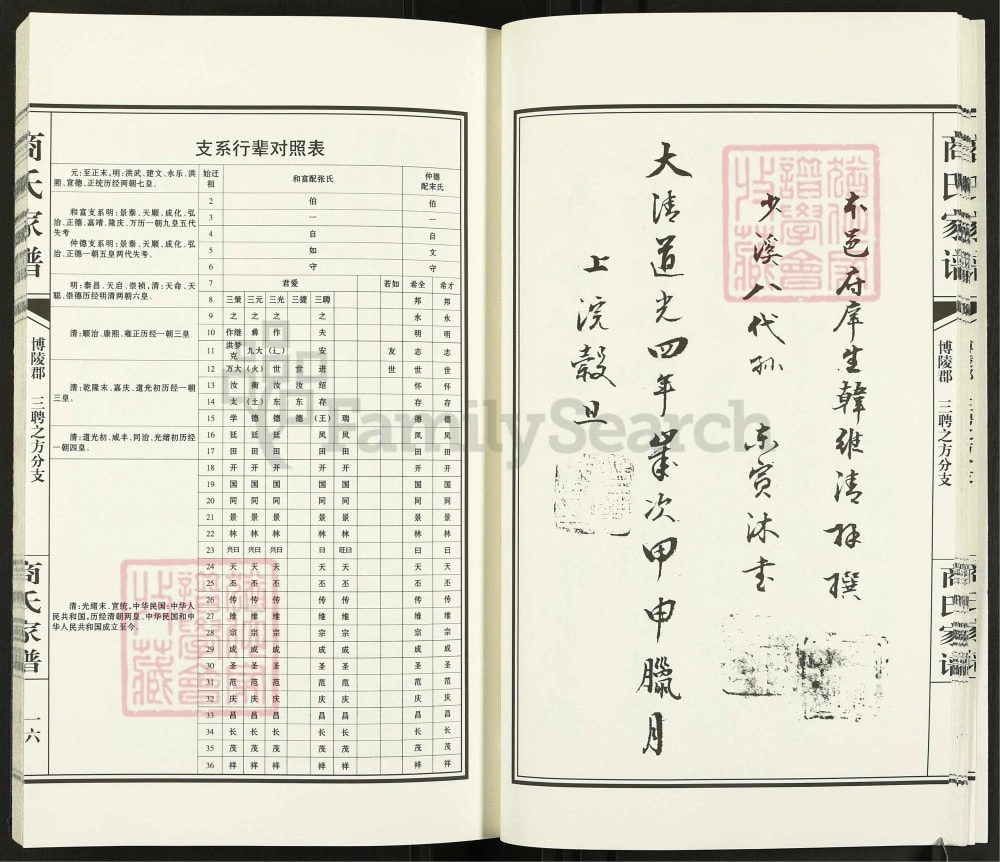 商氏家谱
博陵郡 三聘之方分支
商氏家谱
一六
支系行辈对照表
元:至正末,明:洪武、建文、永乐、洪熙、宣德、正统历经两朝七皇。
和富支系明:景泰、天顺、成化、弘治、正德、嘉靖、隆庆、万历一朝九皇五代失考
仲德支系明:景泰、天顺、成化、弘治、正德一朝五皇两代失考。
明:泰昌、天启、崇祯,清:天命、天聪、崇德历经明清两朝六皇。
清:顺治、康熙、雍正历经一朝三皇
清:乾隆末、嘉庆、道光初历经一朝三皇。
清:道光初、咸丰、同治、光绪初历经一朝四皇。
清:光绪末、宣统,中华民国:中华人民共和国,历经清朝两皇、中华民国和中华人民共和国成立至今。
始迁祖 和富配张氏 仲德配宋氏
2 伯 伯
3 一 一
4 自 自
5 如 文
6 守 守
7 君爱 若如 希全 希才
8 三策 三元 三光 三捷 三聘 邦 邦
9 之 之 之 之 永 永
10 作继 彝 作 夫 明 明
11 洪梦克 九大 (辶) 安 友 志 志
12 万大 (火) 世 世 进 世 世 世
13 汝 衡 汝 汝 绍 怀 怀
14 太 (土) 东 东 存 存 存
15 学 德 德 德 (王) 瑞 德 德
16 廷 廷 廷 凤 凤 凤 凤
17 田 田 田 田 田 田 田
18 开 开 开 开 开 开 开
19 国 国 国 国 国 国 国
20 同 同 同 同 同 同 同
21 景 景 景 景 景 景 景
22 林 林 林 林 林 林 林
23 兴曰 兴曰 兴曰 曰 旺曰 曰 曰
24 天 天 天 天 天 天 天
25 丕 丕 丕 丕 丕 丕 丕
26 传 传 传 传 传 传 传
27 维 维 维 维 维 维 维
28 宗 宗 宗 宗 宗 宗 宗
29 成 成 成 成 成 成 成
30 圣 圣 圣 圣 圣 圣 圣
31 范 范 范 范 范 范 范
32 庆 庆 庆 庆 庆 庆 庆
33 昌 昌 昌 昌 昌 昌 昌
34 长 长 长 长 长 长 长
35 茂 茂 茂 茂 茂 茂 茂
36 祥 祥 祥 祥 祥 祥 祥
FamilySearch
本邑府庠生韓維清拜撰
少溪八代孙 东寅沐书
大清道光四年歲次甲申臘月
上浣穀旦
商氏家谱
博陵郡 三聘之方分支
商氏家谱